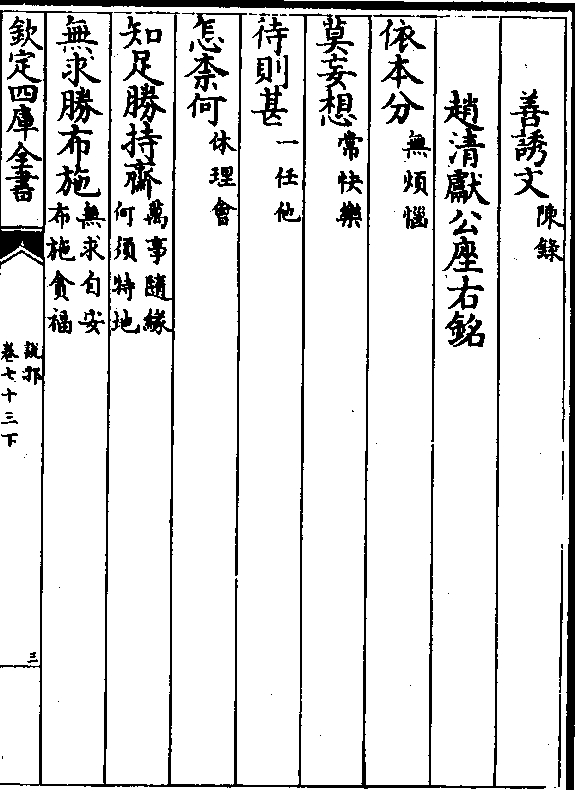 善誘文 陳録
趙清獻公座右銘
依本分 無煩惱
莫妄想 常快樂
待則甚 一任他
怎柰何 休理會
知足勝持齋 萬事隨緣 何須特地
無求勝布施 無求自安 布施貪福
欽定四庫全書
說郛
卷七十三下
三